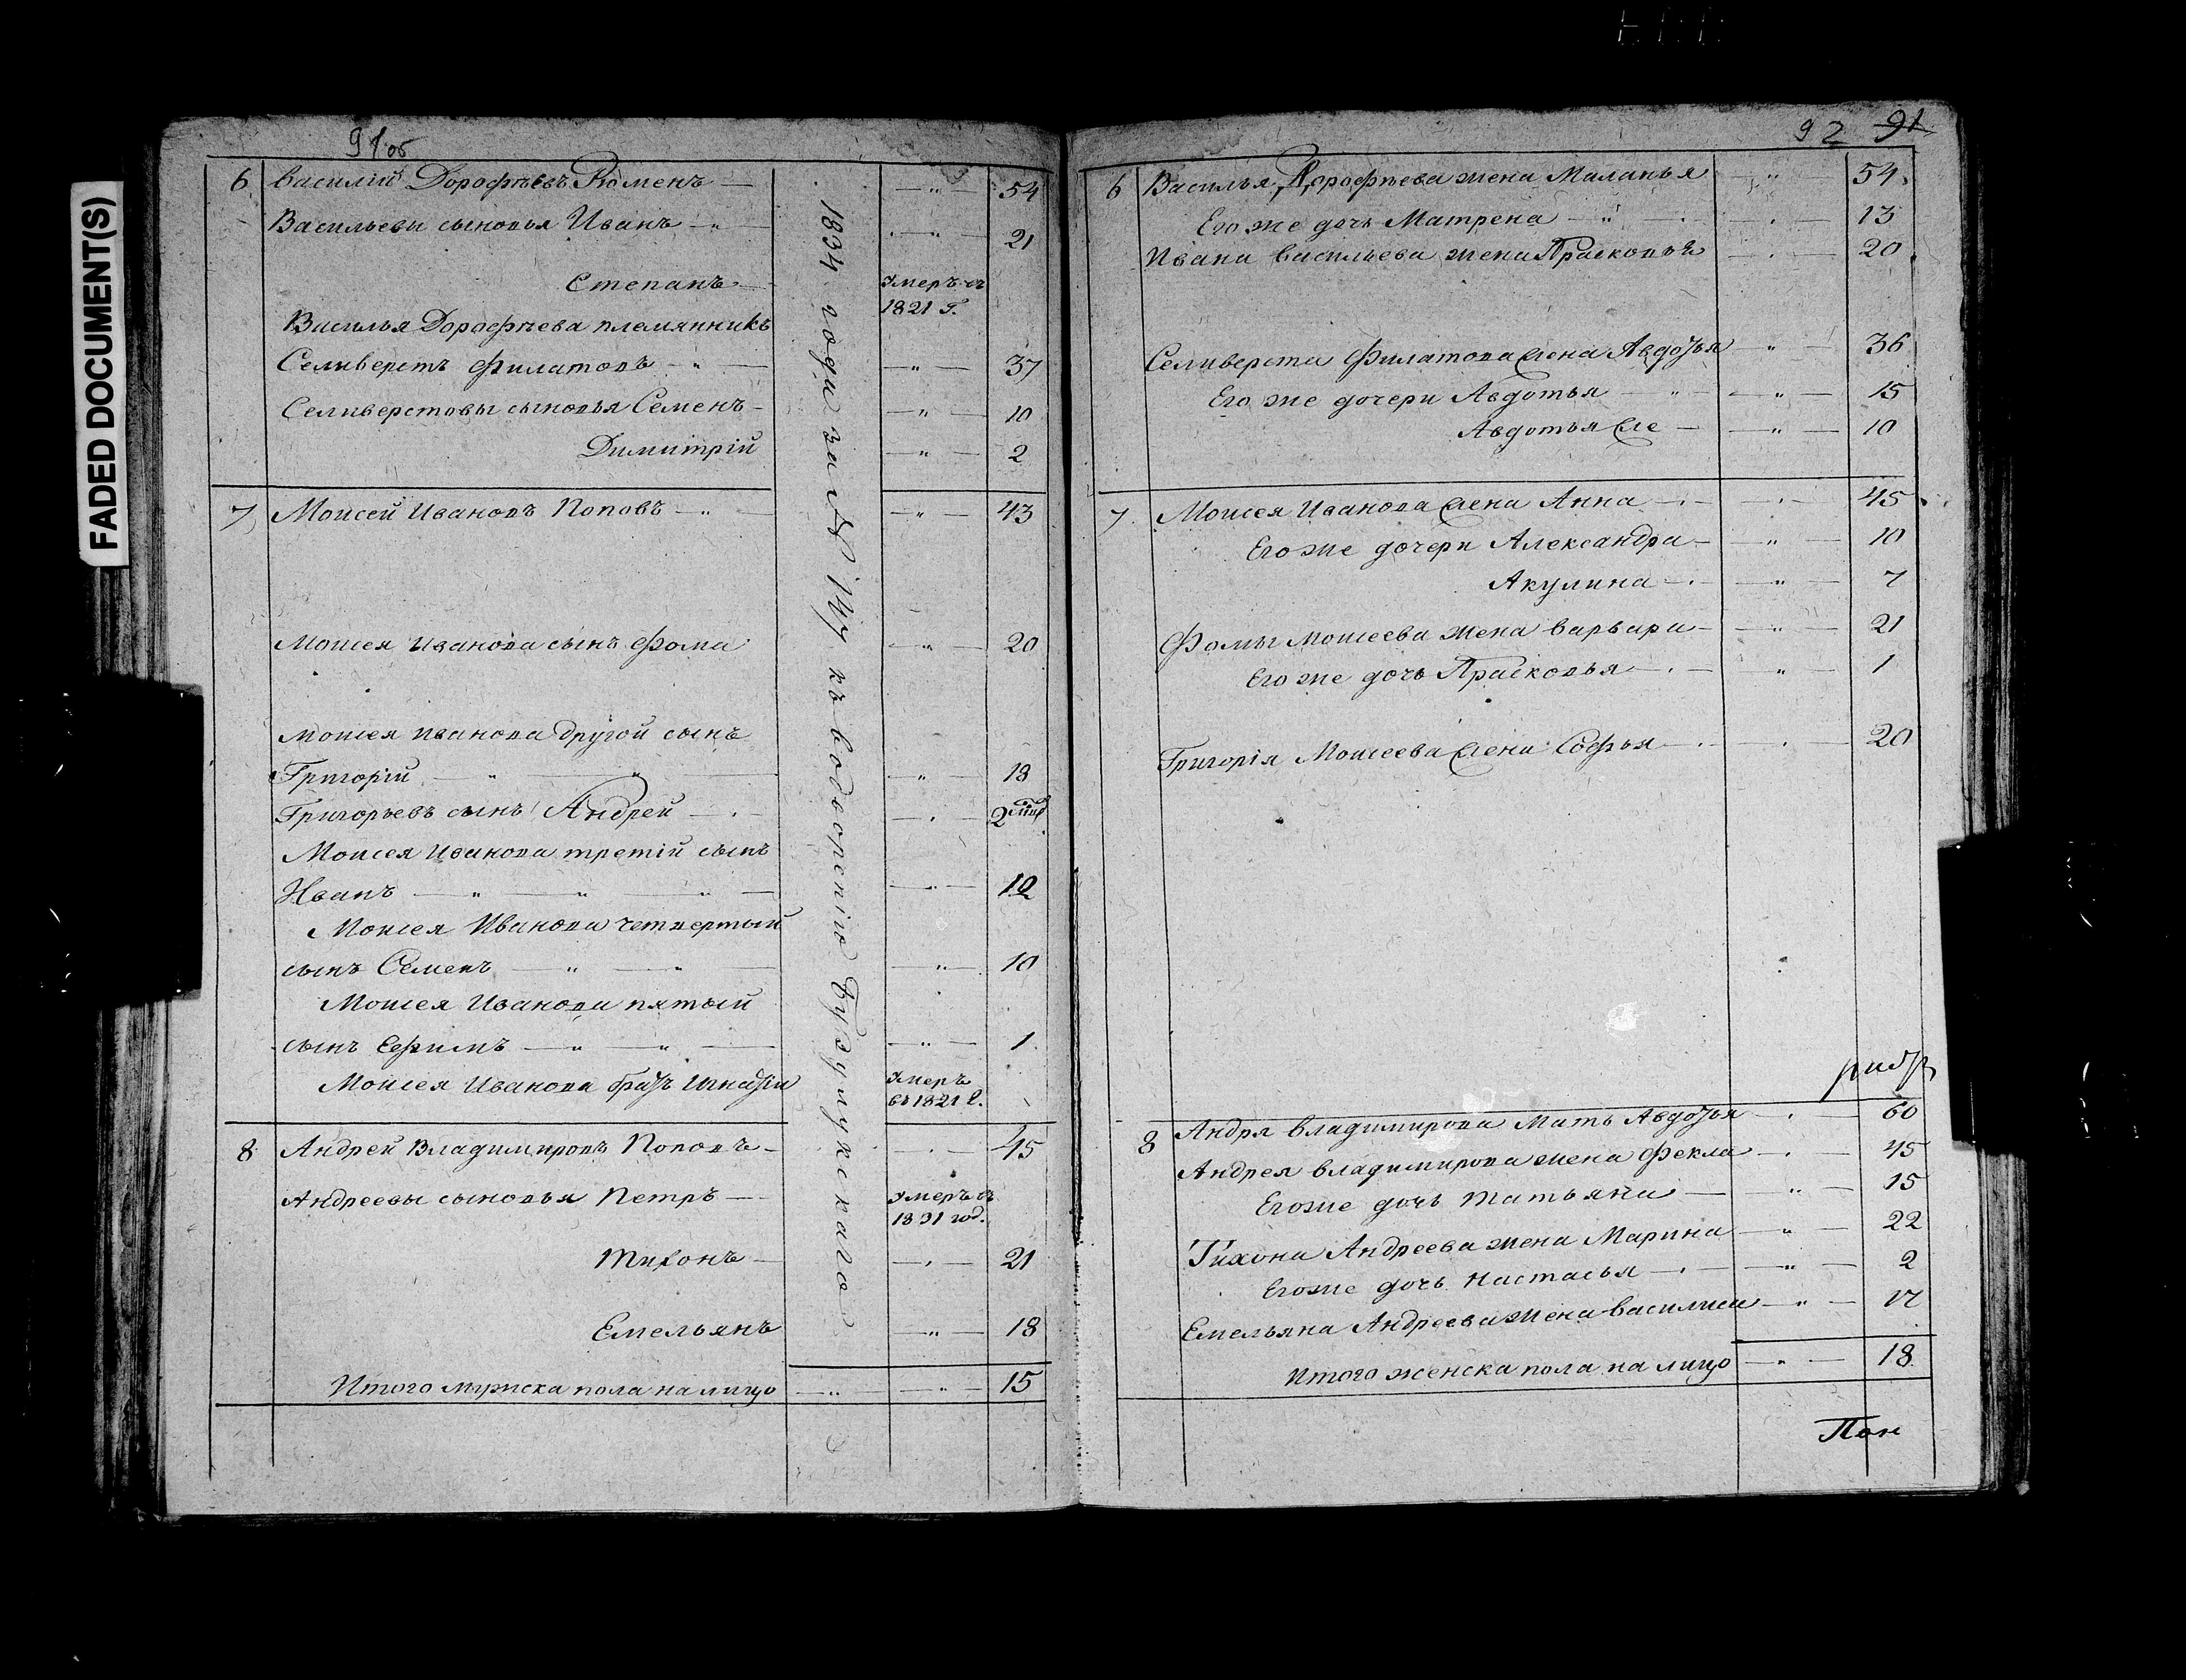 FADED DOCUMENT(S)
91об
6 Василій Дорофѣевъ Рюменъ 54
Васильевы сыновья Иванъ 21
Степанъ умеръ въ
1821 г.
Василья Дорофѣева племянникъ
Селиверстъ Филатовъ 37
Селиверстовы сыновья Семенъ 10
Димитрій 2
7 Моисей Ивановъ Поповъ 43
Моисея Иванова сынъ Фома 20
Моисея Иванова другой сынъ
Григорій 18
Григорьевъ сынъ Андрей 2
Моисея Иванова третій сынъ
Иванъ 12
Моисея Иванова четвертый
сынъ Семенъ 10
Моисея Иванова пятый
сынъ Ефимъ 1
Моисея Иванова братъ Игнатій умеръ
въ 1821 г.
8 Андрей Владимировъ Поповъ 45
Андреевы сыновья Петръ умеръ въ
1831 год.
Тихонъ 21
Емельянъ 18
Итого мужска пола на лицо 15
1834 года за № къ водворенію Бузулукскаго
92 91
6 Василья Дорофѣева жена Маланья 54
Его же дочь Матрена 13
Ивана Васильева жена Прасковья 20
Селиверста Филатова жена Авдотья 36
Его же дочери Авдотья 15
Авдотья же 10
7 Моисея Иванова жена Анна 45
Его же дочери Александра 10
Акулина 7
Фомы Моисеева жена Варвара 21
Его же дочь Прасковья 1
Григорія Моисеева жена Софья 20
8 Андря Владимирова мать Авдотья 60
Андрея Владимирова жена Фекла 45
Его же дочь Татьяна 15
Тихона Андреева жена Марина 22
Его же дочь Настасья 2
Емельяна Андреева жена Василиса 17
Итого женска пола на лицо 18